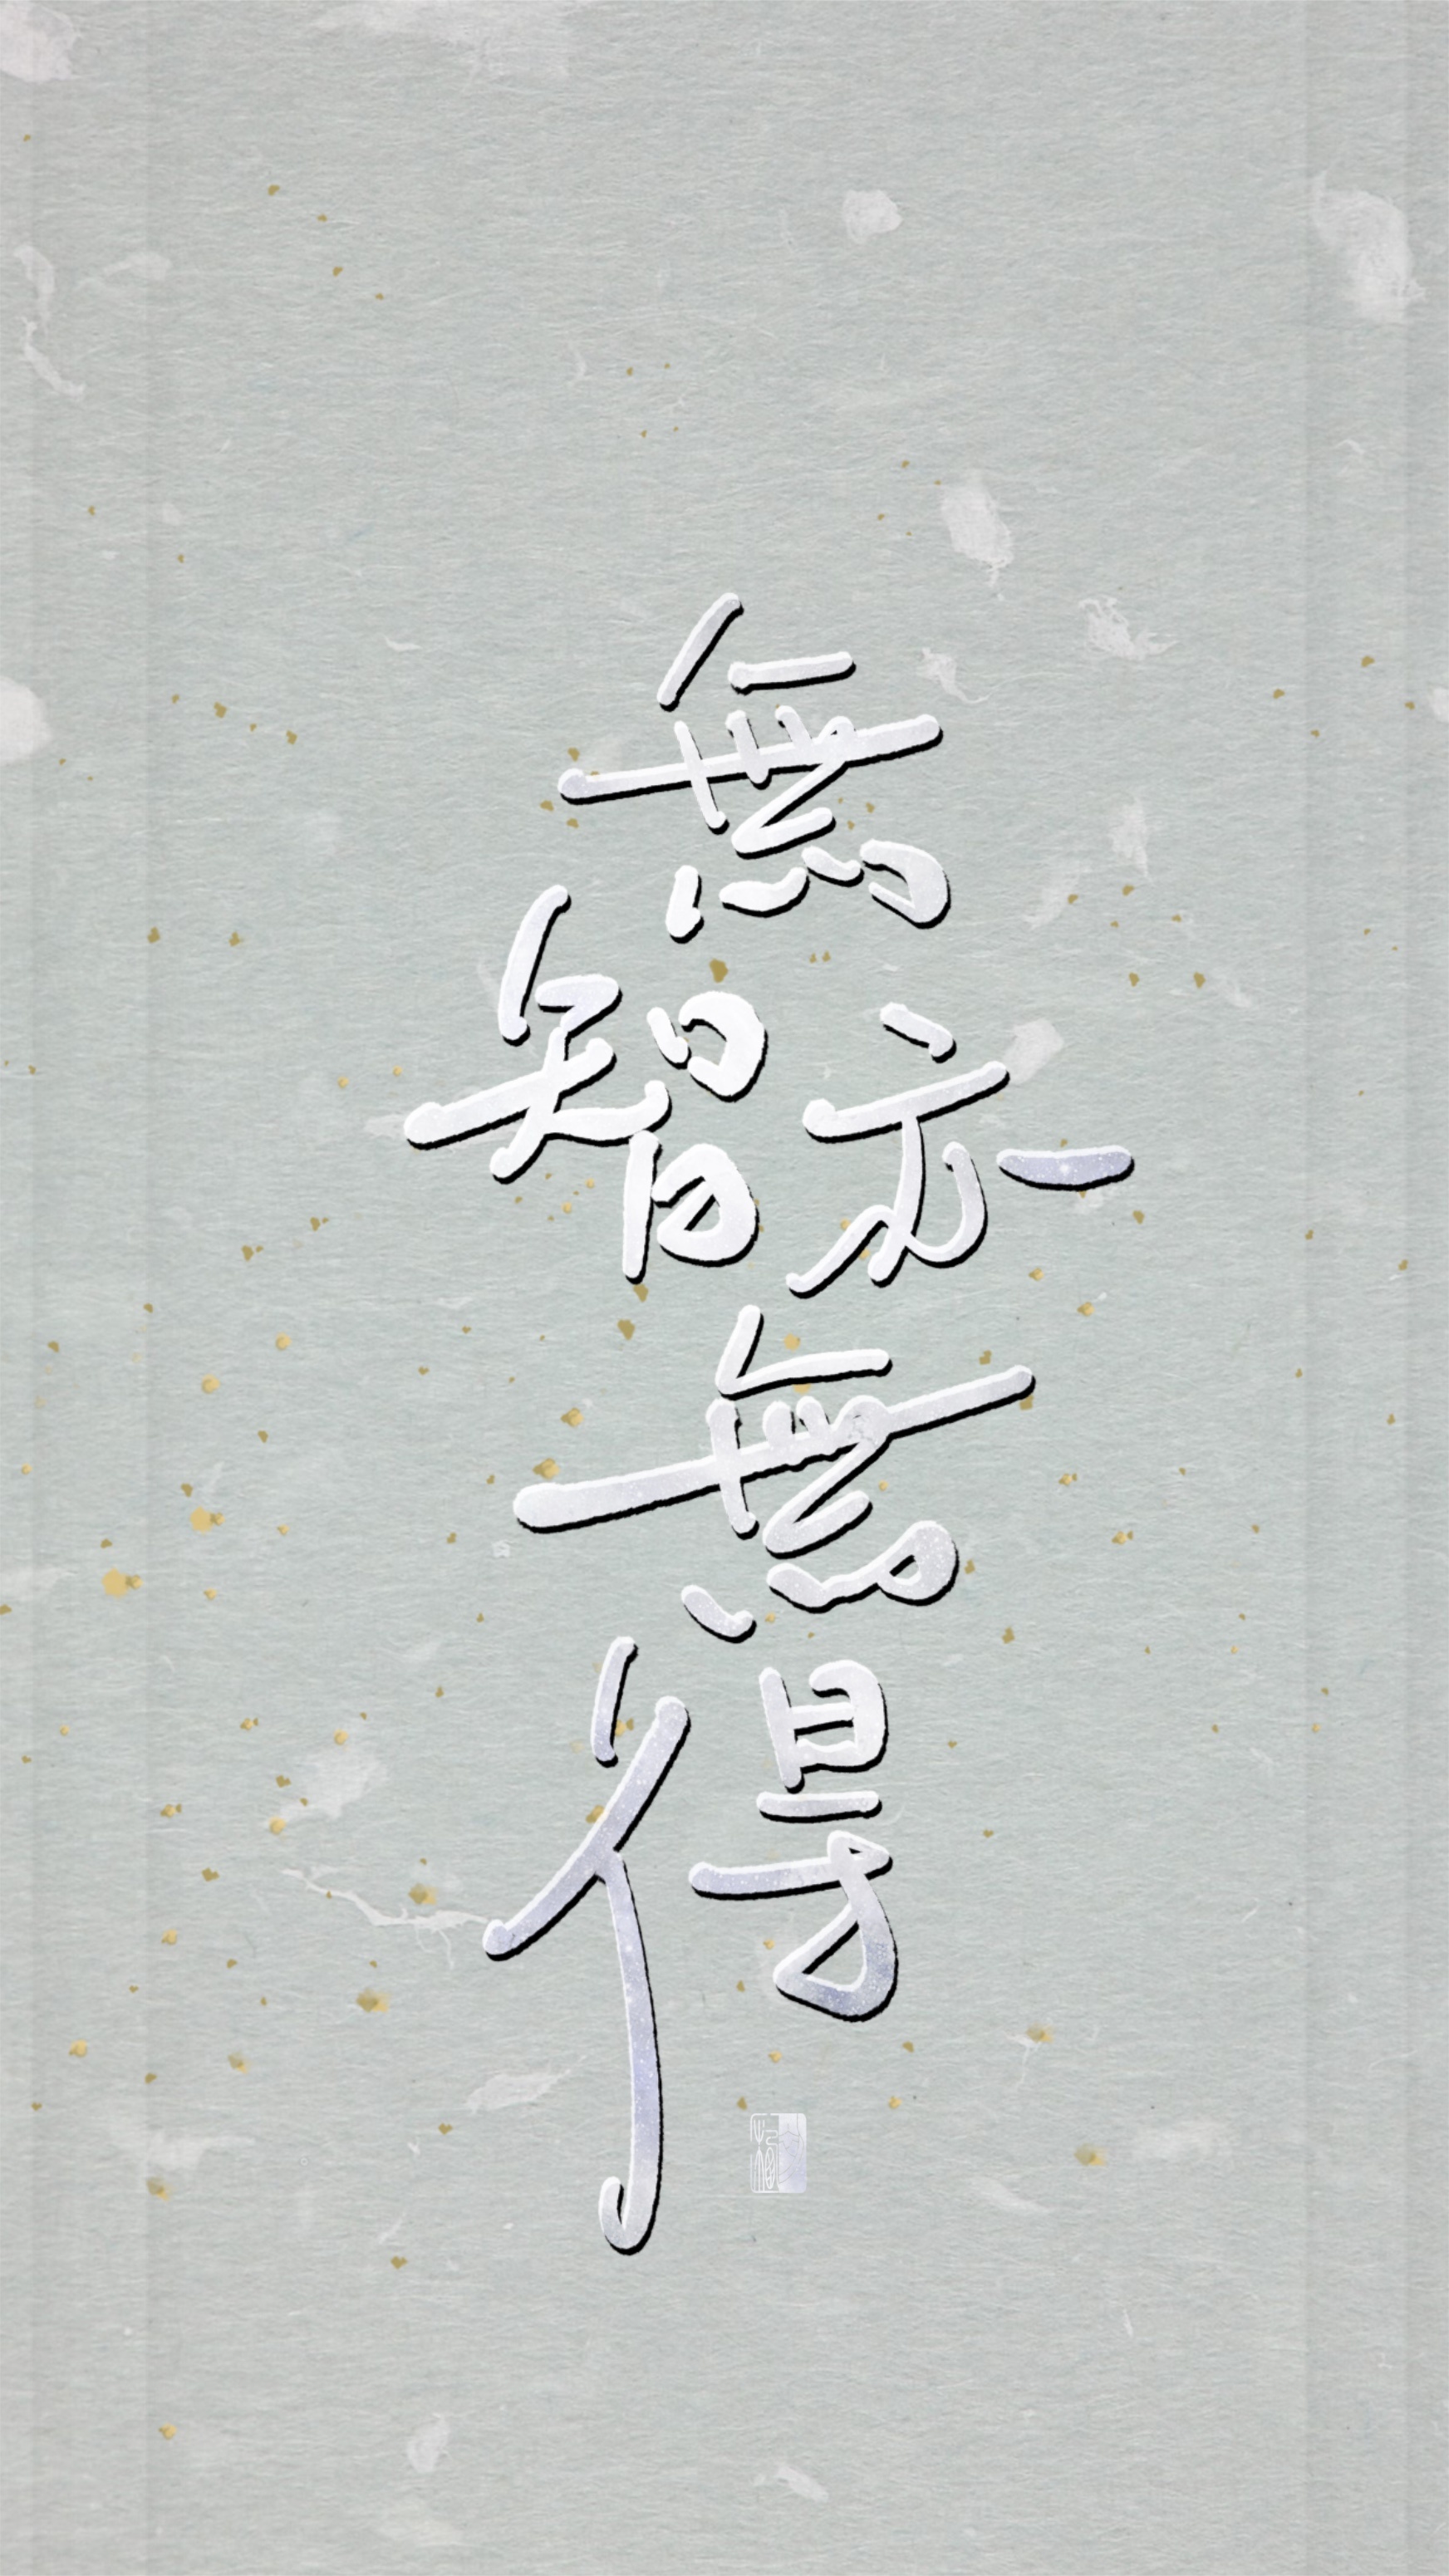 無
智亦
無
得